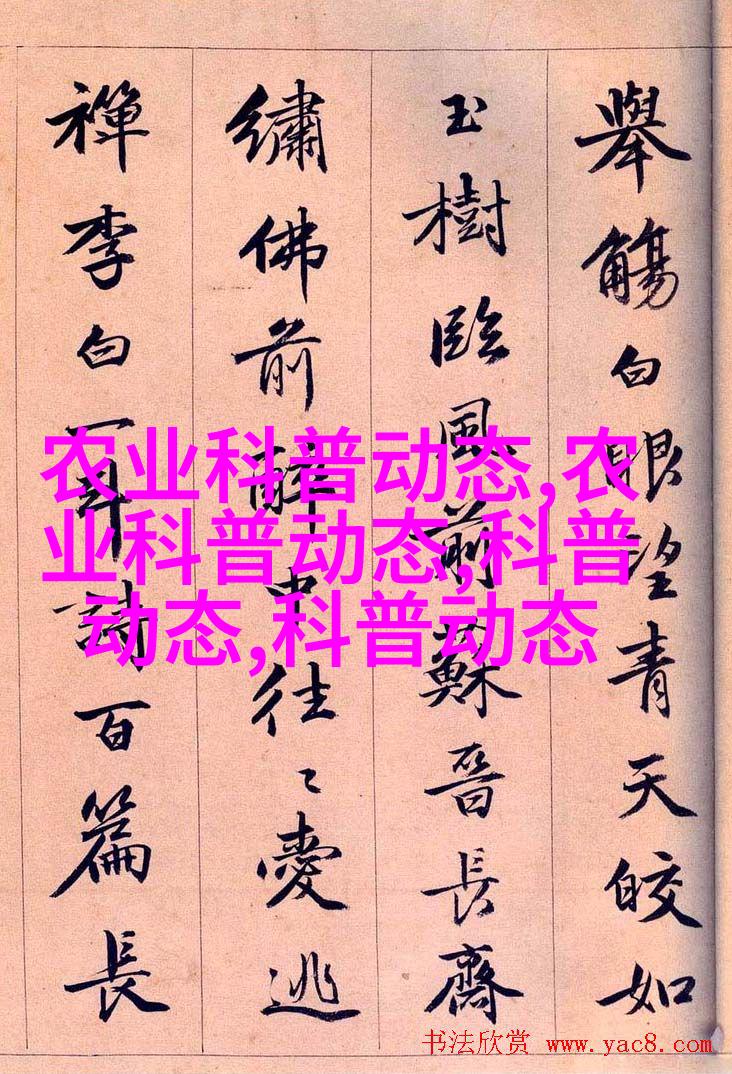 舉觴白眼望青天皎如
玉樹臨風前蘇晉長齋
繡佛前醉中往〻愛逃
禪李白一斗詩百篇長
农业科普动态,农
业科普动态,科普
动态,科普动态
书法欣赏 www.yac8.com